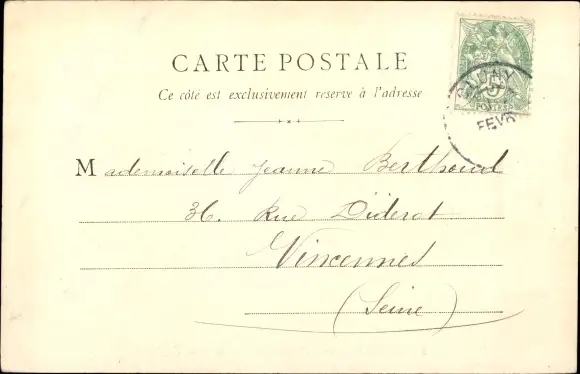 CARTE POSTALE
Ce côté est exclusivement réservé à l'adresse
5
POSTES
CLUNY
FEVR
Mademoiselle Jeanne Berthoud
36. Rue Diderot
Vincennes
(Seine)